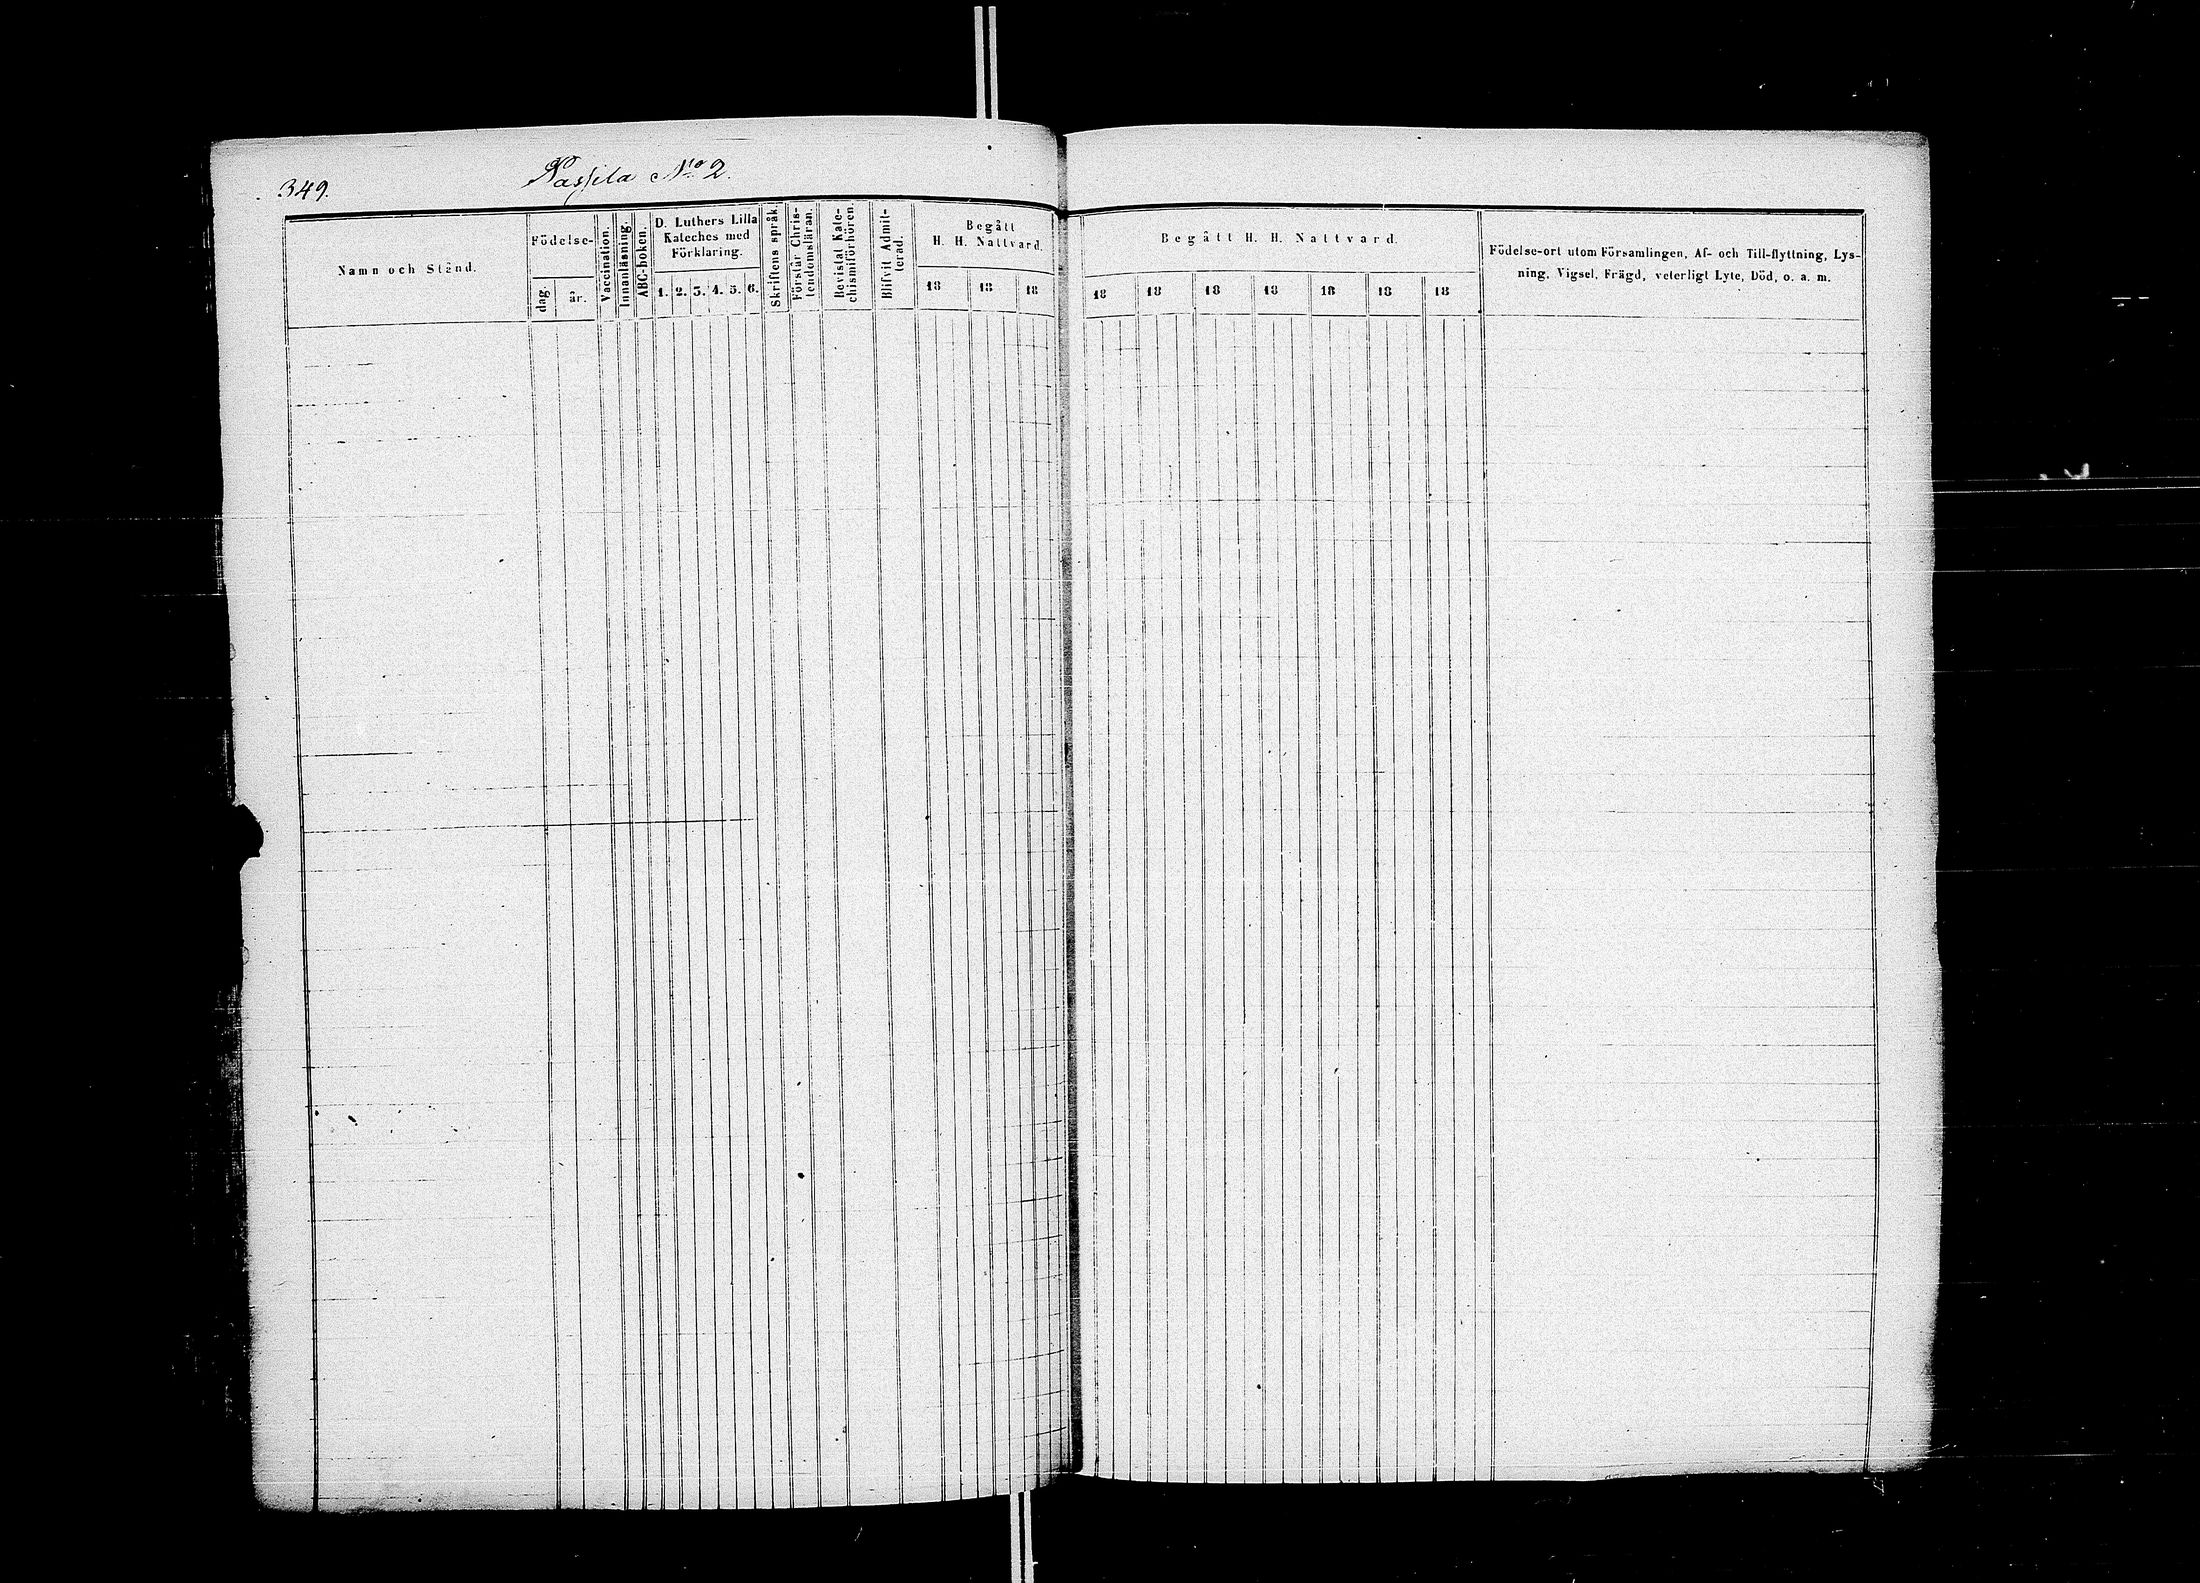 349.
Passila No 2.
Namn och Stånd.
Födelse-
dag.
år.
Vaccination.
Innanläsning.
ABC-boken.
D. Luthers Lilla
Kateches med
Förklaring.
1. 2. 3. 4. 5. 6.
Skriftens språk.
Förstår Chris-
tendomsläran.
Bevistat Kate-
chismiförhören.
Blifvit Admit-
terad.
Begått
H. H. Nattvard.
18 18 18
Begått H. H. Nattvard.
18 18 18 18 18 18 18
Födelse-ort utom Församlingen, Af- och Till-flyttning, Lys-
ning, Vigsel, Frägd, veterligt Lyte, Död, o. a. m.